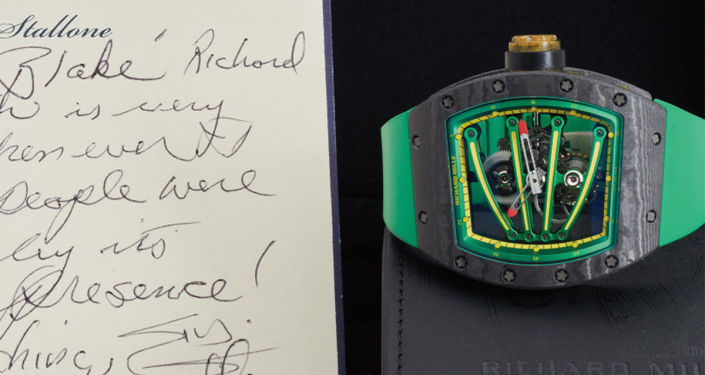 Stallone
Blake' Richard
is very
ever
people were
by its
presence!
RICHARD MILLE
RICHARD MI